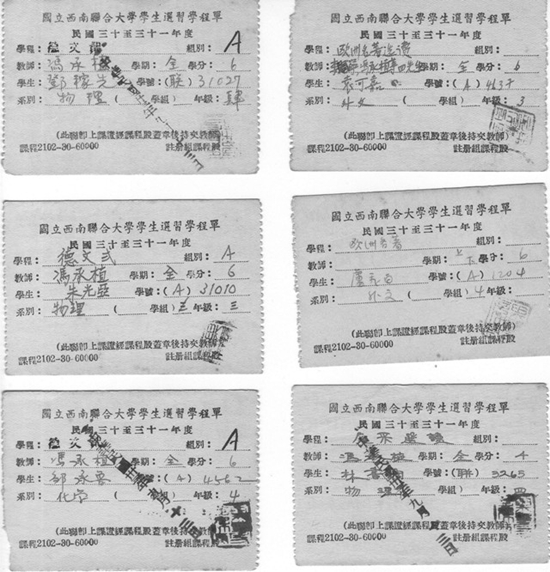 國立西南聯合大學學生選習學程單
民國三十至三十一年度
學程： 德文 組別： A
教師： 馮承植 學期： 全 學分： 6
學生： 鄧稼先 學號：(联) 31027
系別： 物理 ( 學組) 年級： 肆
(此聯卽上課證經課程股蓋章後持交教師)
課程2102-30-60000 註册組課程股
國立西南聯合大學學生選習學程單
民國三十至三十一年度
學程： 歐洲名著選讀 組別：
教師： 學期： 全 學分： 6
學生： 學號：(A) 4637
系別： 外文 ( 學組) 年級： 3
(此聯卽上課證經課程股蓋章後持交教師)
課程2102-30-60000 註册組課程股
國立西南聯合大學學生選習學程單
民國三十至三十一年度
學程： 德文 弍 組別： A
教師： 馮承植 學期： 全 學分： 6
學生： 朱光亞 學號：(A) 31010
系別： 物理 ( 學組) 三 年級： 三
(此聯卽上課證經課程股蓋章後持交教師)
課程2102-30-60000 註册組課程股
國立西南聯合大學學生選習學程單
民國三十至三十一年度
學程： 歐洲名著 組別：
教師： 學期： 學分： 6
學生： 學號：(A) 1204
系別： 外文 ( 學組) 4 年級：
(此聯卽上課證經課程股蓋章後持交教師)
課程2102-30-60000 註册組課程股
國立西南聯合大學學生選習學程單
民國三十至三十一年度
學程： 德文 組別： A
教師： 馮承植 學期： 全 學分： 6
學生： 學號：(A) 4562
系別： 化學 ( 年級： 4
(此聯卽上課證經課程股蓋章後持交教師)
課程2102-30-60000 註册組課程股
國立西南聯合大學學生選習學程單
民國三十至三十一年度
學程： 組別：
教師： 馮承植 學期： 全 學分： 4
學生： 學號：(联) 3265
系別： 物理 ( 年級： 四
(此聯卽上課證經課程股蓋章後持交教師)
課程2102-30-60000 註册組課程股